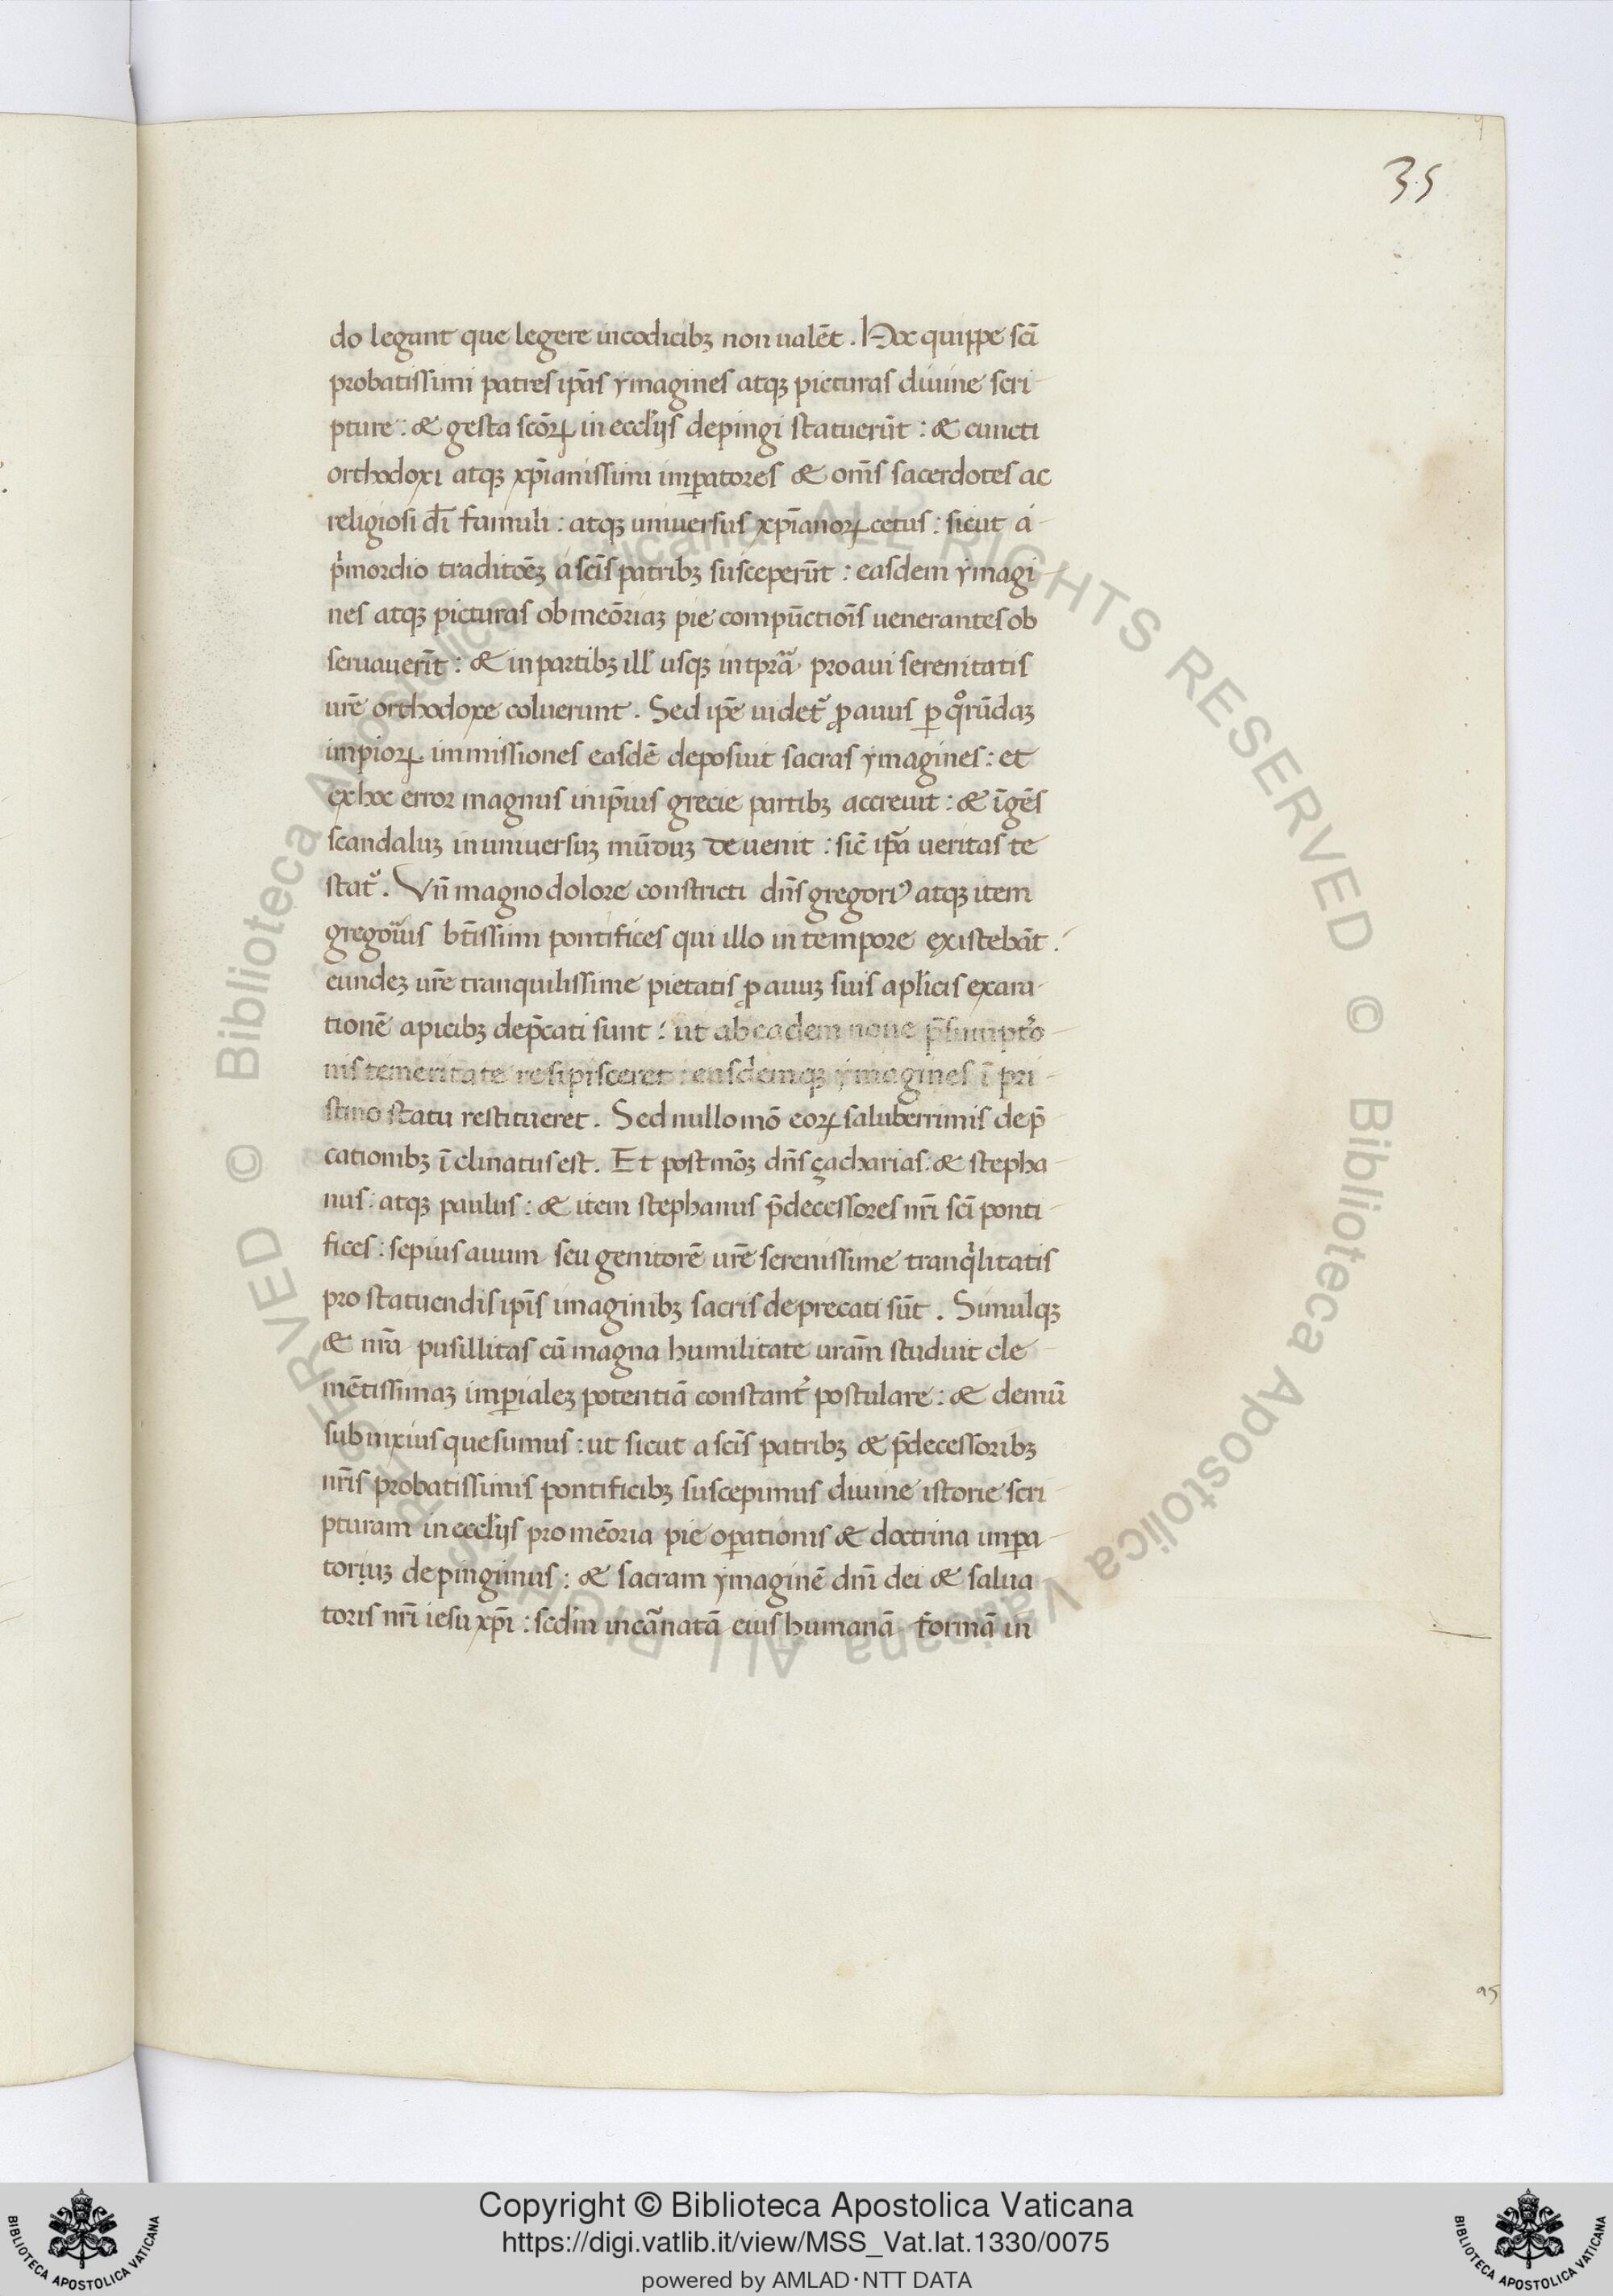 35
do legant que legere in codicibꝫ non ualēt . Hoc quippe scī
probatissimi patres ip̄as ymagines atqꝫ picturas diuine scri-
pture : & gesta scōꝝ in eccl'ijs depingi statuerūt : & cuncti
orthodoxi atqꝫ xp̄ianissimi imꝑatores & om̄s sacerdotes ac
religiosi dī famuli : atqꝫ uniuersus xp̄ianoꝝ cetus : sicut a-
p'mordio traditōeꝫ a sc̄is patribꝫ susceperūt : easdem ymagi-
nes atqꝫ picturas ob meōriaꝫ pie compūctiōis uenerantes ob
seruauerūt : & in partibꝫ ill' usqꝫ in tp̄ra proaui serenitatis
ur̄e orthodoxe coluerunt . Sed ip̄e uidetꝰ ꝓauus ꝑ qͦrūdaꝫ
impioꝝ immissiones easdē deposuit sacras ymagines : et
ex hoc error magnus imp̄ius grecie partibꝫ accreuit : & īgēs
scandaluꝫ in uniuersuꝫ mūduꝫ deuenit : sic̄ ip̄a ueritas te
statꝰ . Vn̄ magno dolore constricti dn̄s gregoriꝰ atqꝫ item
gregorius bt̄issimi pontifices qui illo in tempore existebāt .
eundeꝫ ur̄e tranquilissime pietatis ꝓauuꝫ suis apl'icis exara-
tionē apicibꝫ dep̄cati sunt : ut ab eadem none p̄sumptō-
nis temeritate resipisceret : easdemqꝫ ymagines ī pri-
stino statu restitueret . Sed nullo mō eoꝝ saluberrimis dep̄
cationibꝫ īclinatus est . Et postmōꝫ dn̄s çacharias : & stepha-
nus : atqꝫ paulus : & item stephanus p̄decessores nr̄i scī ponti-
fices : sepius auum seu genitorē ur̄e serenissime tranq'litatis
pro statuendis ip̄is imaginibꝫ sacris deprecati sūt . Simulqꝫ
& nr̄a pusillitas cū magna humilitate uram̄ studuit cle-
mētissimaꝫ imꝑialeꝫ potentiā constant' postulare : & demū
subnixius quesumus : ut sicut a sc̄is patribꝫ & p̄decessoribꝫ
nr̄is probatissimis pontificibꝫ suscepimus diuine istorie scri-
pturam in eccl'ijs pro meōria pie oꝑationis & doctrina imꝑa-
toriuꝫ depingimus : & sacram ymaginē dn̄i dei & salua
toris nr̄i iesu xp̄i : sedm̄ incar̄natā eius humanā formā in
95
Copyright © Biblioteca Apostolica Vaticana
https://digi.vatlib.it/view/MSS_Vat.lat.1330/0075
powered by AMLAD·NTT DATA
BIBLIOTECA APOSTOLICA VATICANA
BIBLIOTECA APOSTOLICA VATICANA
© Biblioteca Apostolica Vaticana ALL RIGHTS RESERVED © Biblioteca Apostolica Vaticana ALL RIGHTS RESERVED